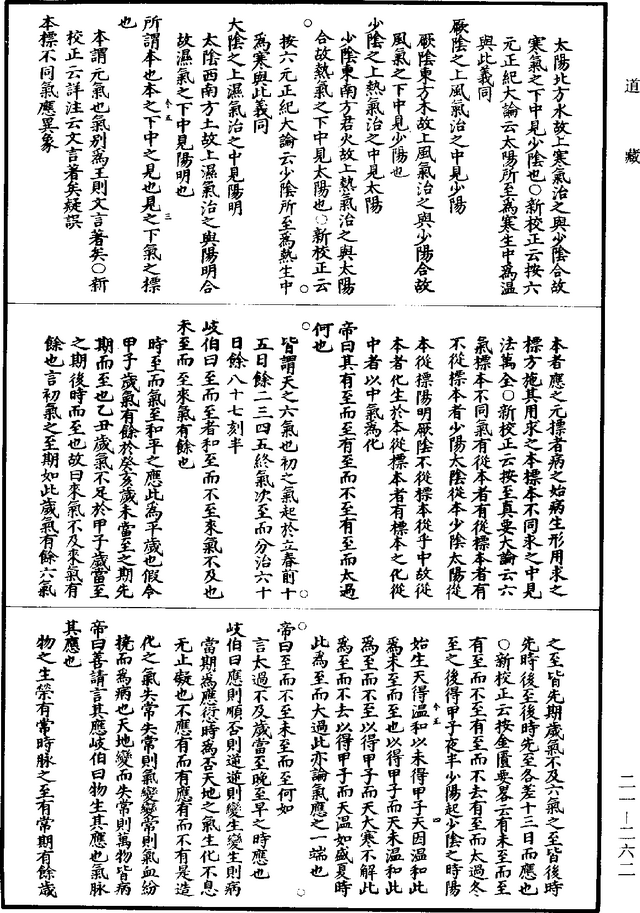 道藏
太陽北方水故上寒氣治之與少陰合故
寒氣之下中見少陰也○新校正云按六
元正紀大論云太陽所至爲寒生中爲溫
與此義同
厥陰之上風氣治之中見少陽
厥陰東方木故上風氣治之與少陽合故
風氣之下中見少陽也
少陰之上熱氣治之中見太陽
少陰東南方君火故上熱氣治之與太陽
合故熱氣之下中見太陽也○新校正云
按六元正紀大論云少陰所至爲熱生中
爲寒與此義同
太陰之上濕氣治之中見陽明
太陰西南方土故上濕氣治之與陽明合
故濕氣之下中見陽明也
所謂本也本之下中之見也見之下氣之標
也
本謂元氣也氣別爲王則文言著矣○新
校正云詳注云文言著矣疑誤
本標不同氣應異象
本者應之元標者病之始病生形用求之
標方施其用求之本標本不同求之中見
法萬全○新校正云按至真要大論云六
氣標本不同氣有從本者有從標本者有
不從標本者少陽太陰從本少陰太陽從
本從標陽明厥陰不從標本從乎中故從
本者化生於本從標本者有標本之化從
中者以中氣爲化
帝曰其有至而至有至而不至有至而太過
何也
皆謂天之六氣也初之氣起於立春前十
五日餘二三四五終氣次至而分治六十
日餘八十七刻半
岐伯曰至而至者和至而不至來氣不及也
未至而至來氣有餘也
時至而氣至和平之應此爲平歲也假令
甲子歲氣有餘於癸亥歲未當至之期先
期而至也乙丑歲氣不足於甲子歲當至
之期後時而至也故曰來氣不及來氣有
餘也言初氣之至期如此歲氣有餘六氣
之至皆先期歲氣不及六氣之至皆後時
先時後至後時先至各差十三日而應也
○新校正云按金匱要略云有未至而至
有至而不至有至而不去有至而太過冬
至之後得甲子夜半少陽起少陰之時陽
始生天得溫和以未得甲子天因溫和此
爲未至而至也以得甲子而天未溫和此
爲至而不至以得甲子而天大寒不解此
爲至而不去以得甲子而天溫如盛夏時
此爲至而太過此亦論氣應之一端也
帝曰至而不至未至而至何如
言太過不及歲當至晚至早之時應也
岐伯曰應則順否則逆逆則變生變生則病
當期爲應愆時爲否天地之氣生化不息
無止礙也不應有而有應有而不有是造
化之氣失常失常則氣變變常則氣血紛
撓而爲病也天地變而失常則萬物皆病
帝曰善請言其應岐伯曰物生其應也氣脈
其應也
物之生榮有常時脈之至有常期有餘歲
二一—二六二